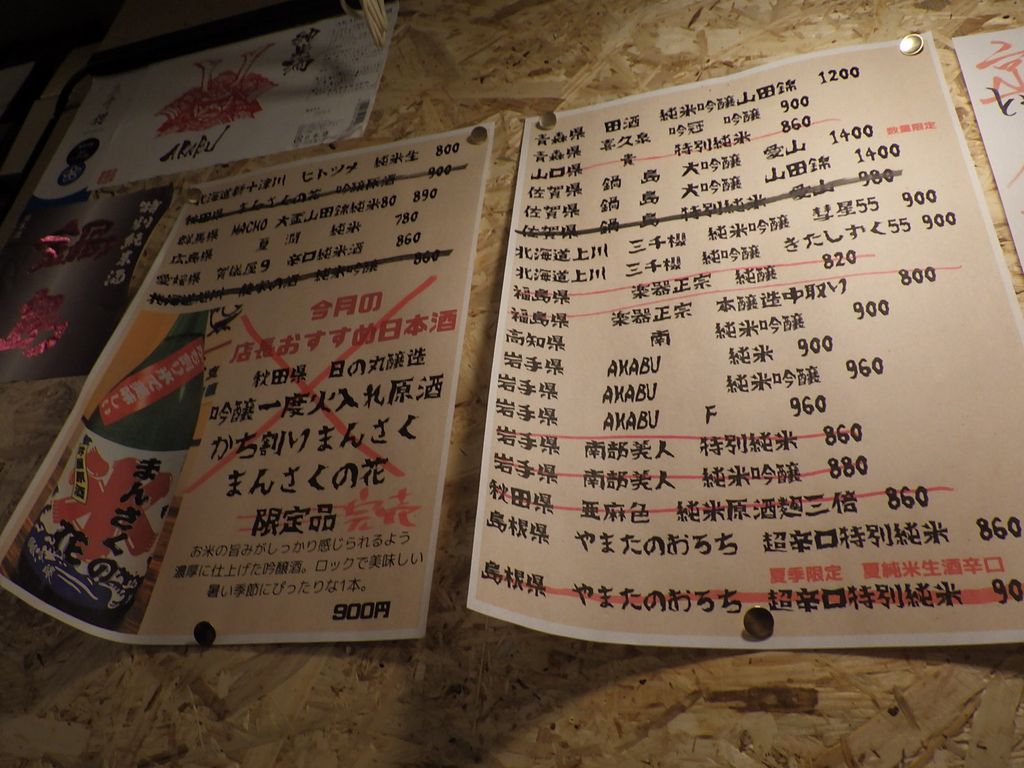 AKABU
北海道新十津川 ヒトツメ 純米生 800
秋田県 まんさくの花 吟醸原酒 900
群馬県 MACHO 大盃山田錦純米80 890
広島県 純米 780
愛媛県 賀儀屋9 辛口純米酒 860
純米吟醸 860
今月の
店長おすすめ日本酒
秋田県 日の丸醸造
吟醸一度火入れ原酒
かち割りまんさく
まんさくの花
限定品 完売
お米の旨みがしっかり感じられるよう
濃厚に仕上げた吟醸酒。ロックで美味しい
暑い季節にぴったりな1本。
900円
まんさくの花
青森県 田酒 純米吟醸山田錦 1200
青森県 喜久泉 吟冠 吟醸 900
山口県 貴 特別純米 860
数量限定
佐賀県 鍋島 大吟醸 愛山 1400
佐賀県 鍋島 大吟醸 山田錦 1400
佐賀県 鍋島 特別純米 愛山 980
北海道上川 三千櫻 純米吟醸 彗星55 900
北海道上川 三千櫻 純米吟醸 きたしずく55 900
福島県 楽器正宗 純醸 820
福島県 楽器正宗 本醸造中取り 800
高知県 南 純米吟醸 900
岩手県 AKABU 純米 900
岩手県 AKABU 純米吟醸 960
岩手県 AKABU F 960
岩手県 南部美人 特別純米 860
岩手県 南部美人 純米吟醸 880
秋田県 亜麻色 純米原酒麹三倍 860
島根県 やまたのおろち 超辛口特別純米 860
夏季限定 夏純米生酒辛口
島根県 やまたのおろち 超辛口特別純米 90